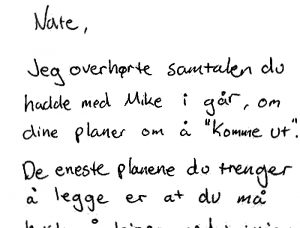 Nate,
Jeg overhørte samtalen du
hadde med Mike i går, om
dine planer om å "komme ut".
De eneste planene du trenger
å legge er at du må